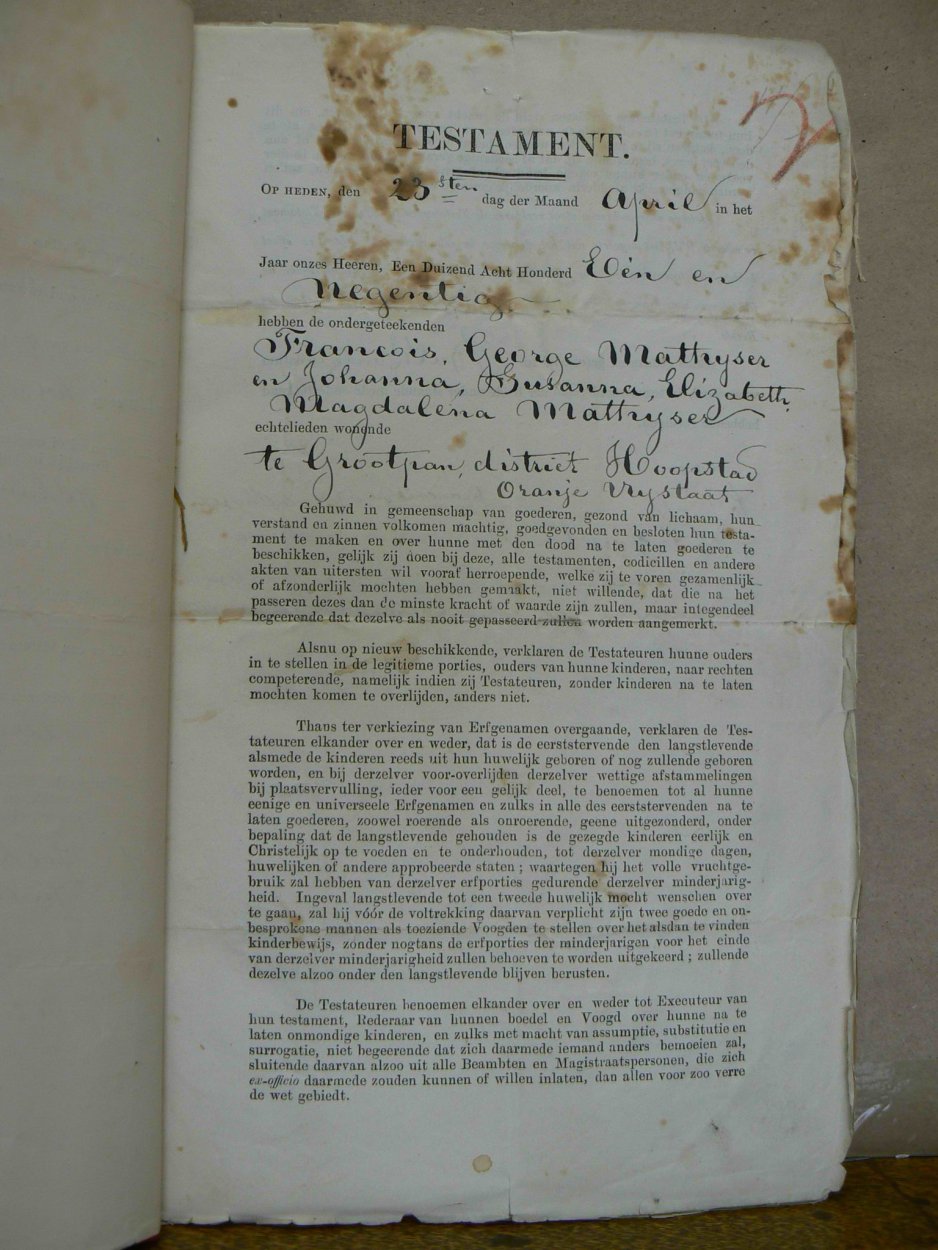 TESTAMENT.
OP HEDEN, den 23sten dag der Maand April in het
Jaar onzes Heeren, Een Duizend Acht Honderd Eén en
Negentig
hebben de ondergeteekenden
Francois, George Mathyser
en Johanna, Susanna, Elizabeth,
Magdalena Mathyser
echtelieden wonende
te Grootpan, district Hoopstad
Oranje Vrystaat
Gehuwd in gemeenschap van goederen, gezond van lichaam, hun
verstand en zinnen volkomen machtig, goedgevonden en besloten hun testa-
ment te maken en over hunne met den dood na te laten goederen te
beschikken, gelijk zij doen bij deze, alle testamenten, codicillen en andere
akten van uitersten wil vooraf herroepende, welke zij te voren gezamenlijk
of afzonderlijk mochten hebben gemaakt, niet willende, dat die na het
passeren dezes dan de minste kracht of waarde zijn zullen, maar integendeel
begeerende dat dezelve als nooit gepasseerd zullen worden aangemerkt.
Alsnu op nieuw beschikkende, verklaren de Testateuren hunne ouders
in te stellen in de legitieme porties, ouders van hunne kinderen, naar rechten
competerende, namelijk indien zij Testateuren, zonder kinderen na te laten
mochten komen te overlijden, anders niet.
Thans ter verkiezing van Erfgenamen overgaande, verklaren de Tes-
tateuren elkander over en weder, dat is de eerststervende den langstlevende
alsmede de kinderen reeds uit hun huwelijk geboren of nog zullende geboren
worden, en bij derzelver voor-overlijden derzelver wettige afstammelingen
bij plaatsvervulling, ieder voor een gelijk deel, te benoemen tot al hunne
eenige en universeele Erfgenamen en zulks in alle des eerststervenden na te
laten goederen, zoowel roerende als onroerende, geene uitgezonderd, onder
bepaling dat de langstlevende gehouden is de gezegde kinderen eerlijk en
Christelijk op te voeden en te onderhouden, tot derzelver mondige dagen,
huwelijken of andere approbeerde staten ; waartegen hij het volle vruchtge-
bruik zal hebben van derzelver erfporties gedurende derzelver minderjarig-
heid. Ingeval langstlevende tot een tweede huwelijk mocht wenschen over
te gaan, zal hij vóór de voltrekking daarvan verplicht zijn twee goede en on-
besprokene mannen als toeziende Voogden te stellen over het alsdan te vinden
kinderbewijs, zonder nogtans de erfporties der minderjarigen voor het einde
van derzelver minderjarigheid zullen behoeven te worden uitgekeerd ; zullende
dezelve alzoo onder den langstlevende blijven berusten.
De Testateuren benoemen elkander over en weder tot Executeur van
hun testament, Rederaar van hunnen boedel en Voogd over hunne na te
laten onmondige kinderen, en zulks met macht van assumptie, substitutie en
surrogatie, niet begeerende dat zich daarmede iemand anders bemoeien zal,
sluitende daarvan alzoo uit alle Beambten en Magistraatspersonen, die zich
ex-officio daarmede zouden kunnen of willen inlaten, dan allen voor zoo verre
de wet gebiedt.